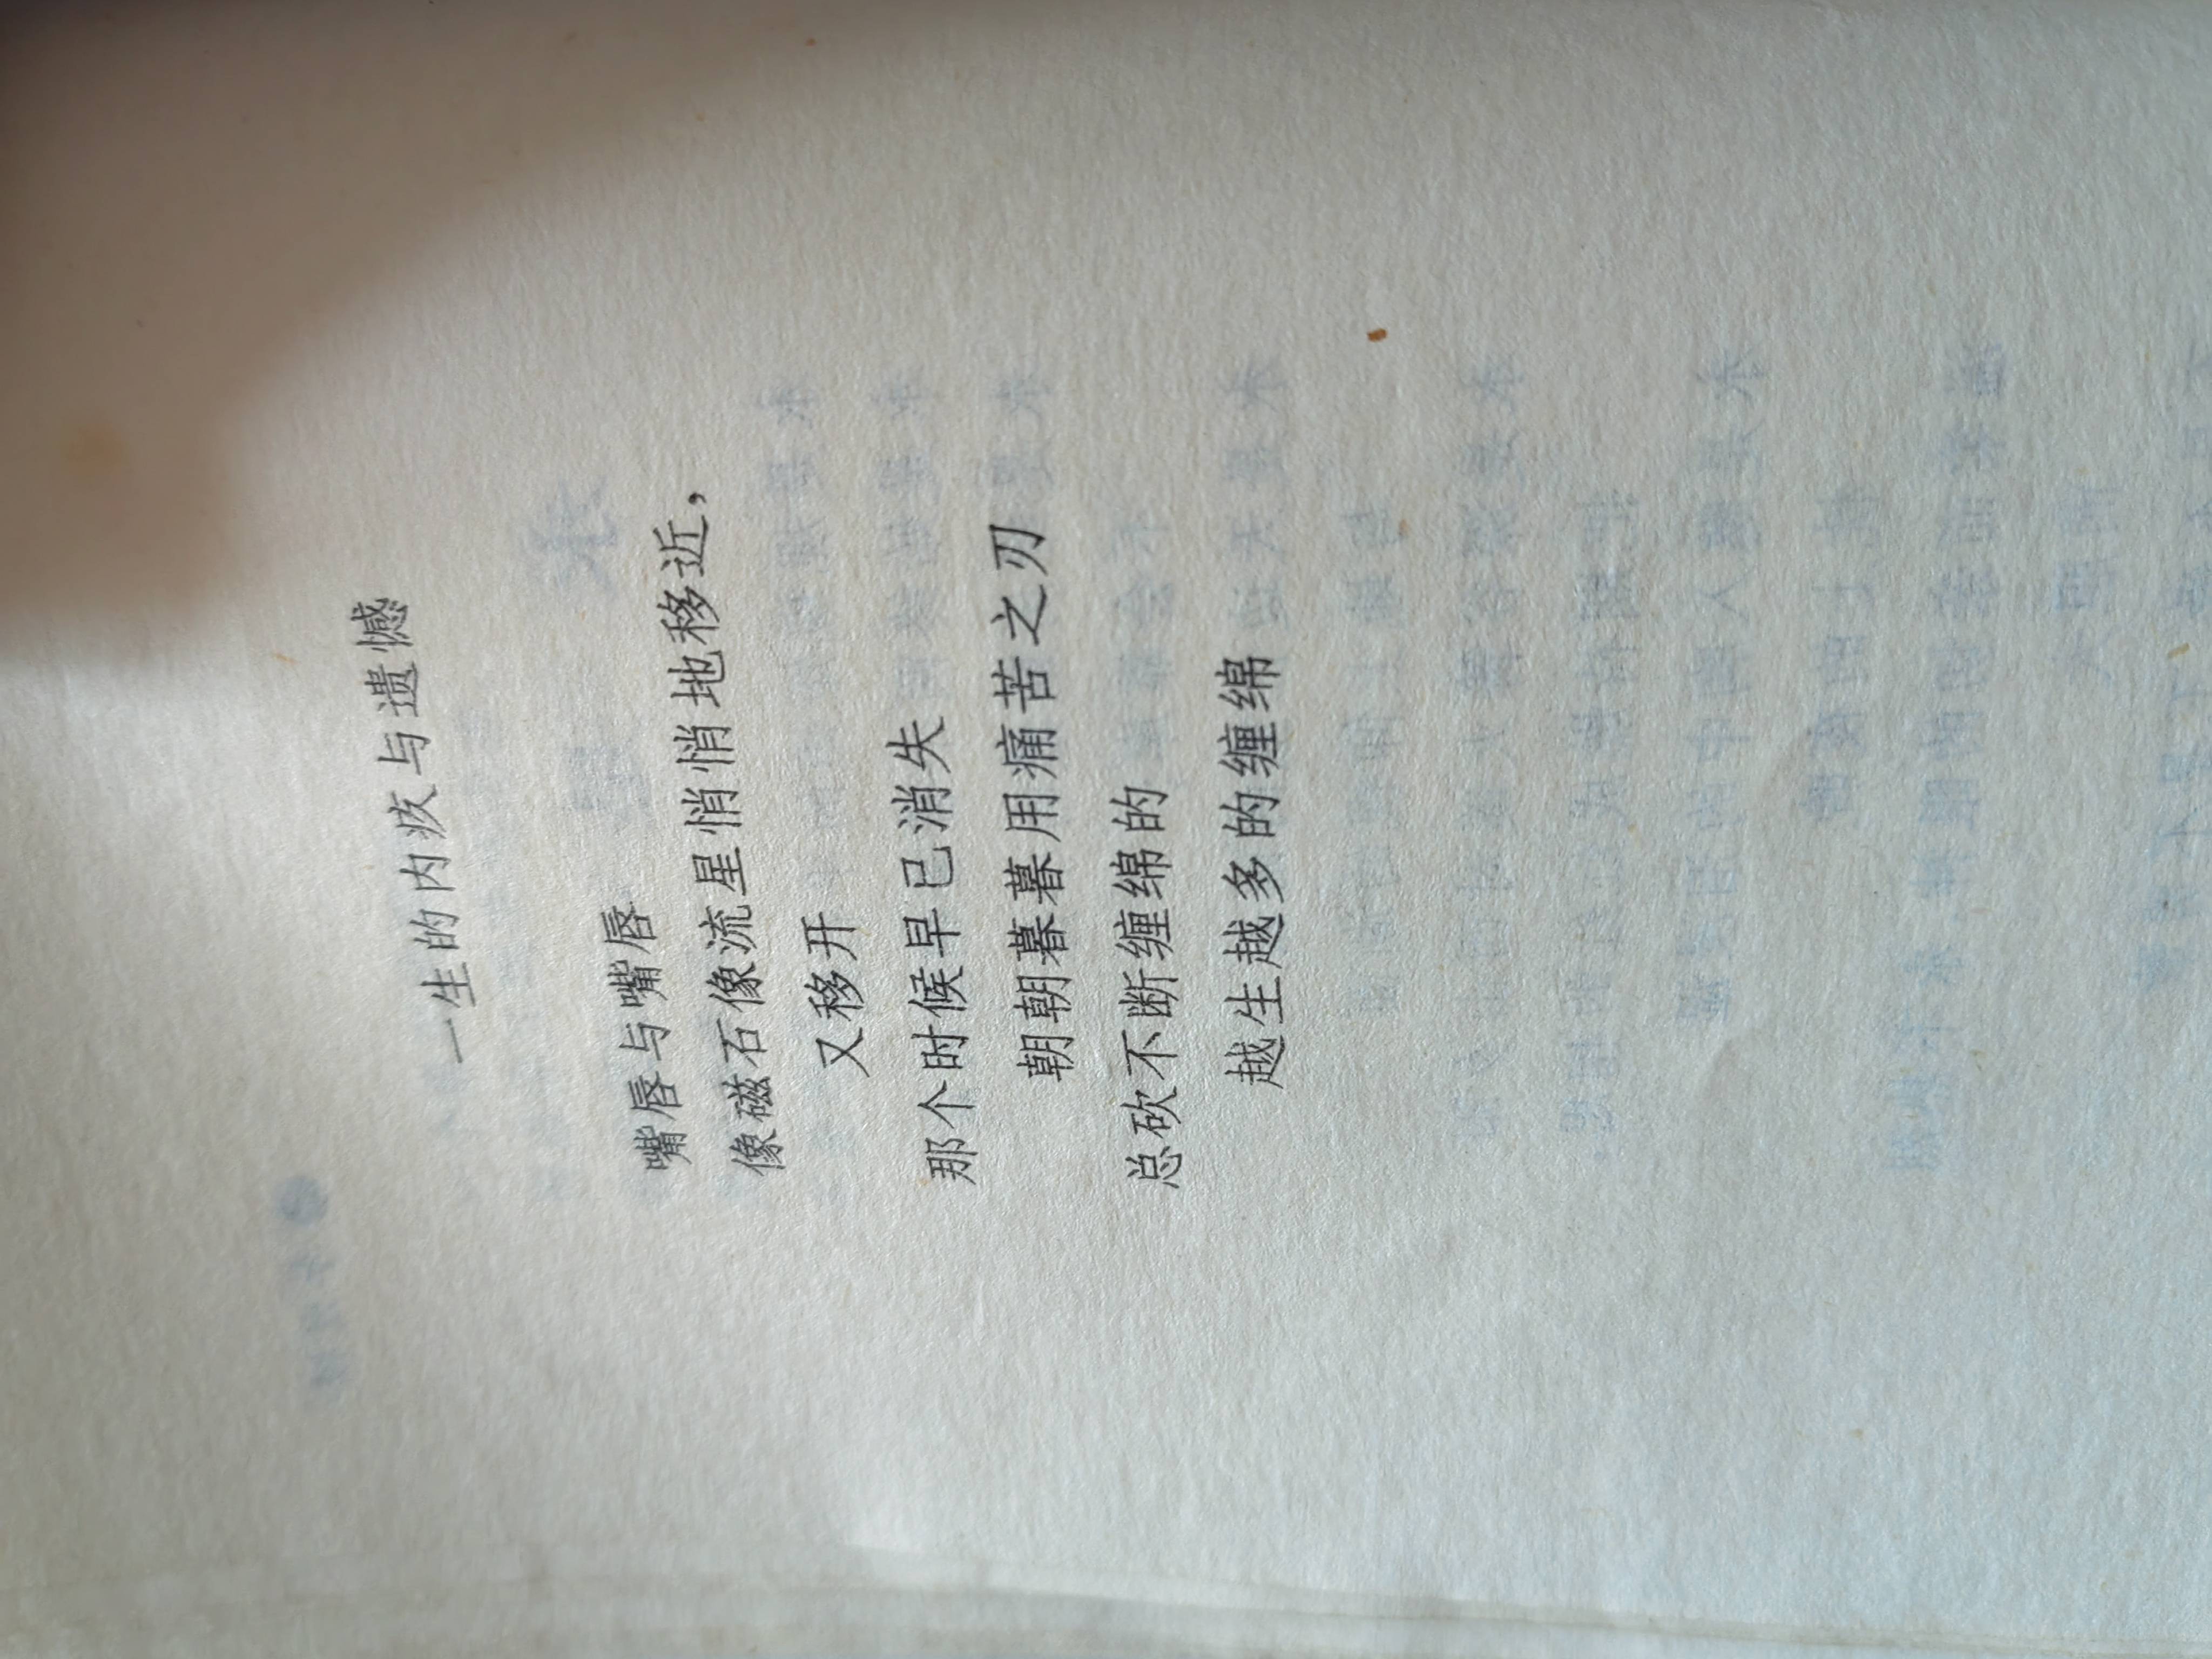 一生的内疚与遗憾
嘴唇与嘴唇
像磁石像流星悄悄地移近，
又移开
那个时候早已消失
朝朝暮暮用痛苦之刃
总砍不断缠绵的
越生越多的缠绵